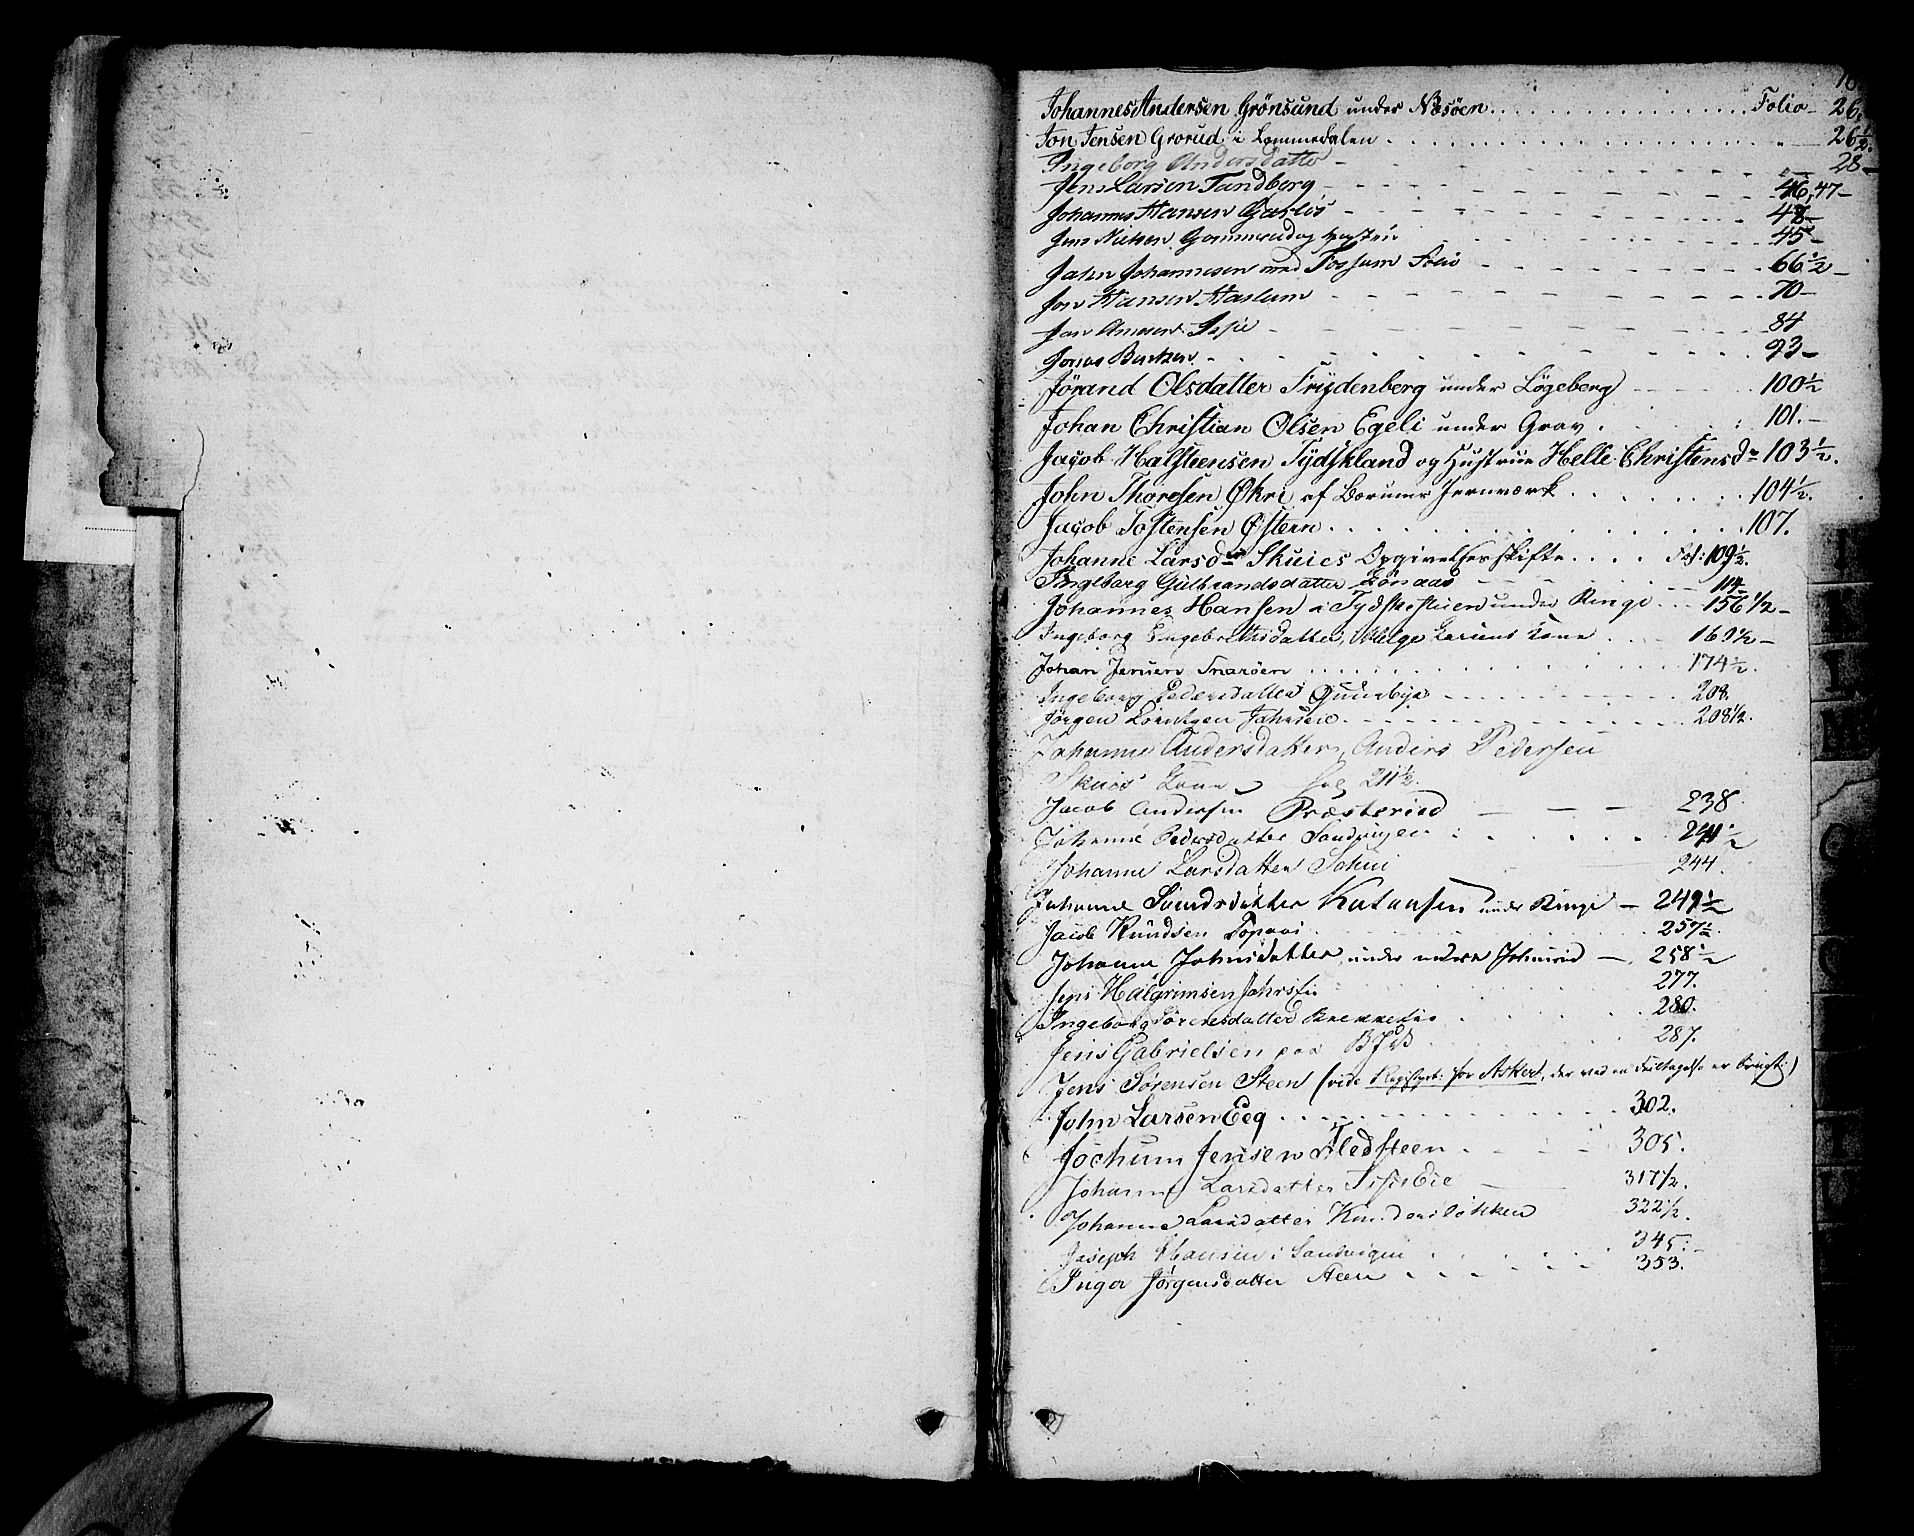 Johannes Andersen Grönsund under Næsöen . . . Folio - 26
Jon Jensen Grorud i Lommedalen . . . 26½.
Ingeborg Andersdatter - 28 -
Jens Larsen Tandberg - 46, 47 -
Johannes Hansen Garlös - 48 -
Jens Nielsen Gommerud og Hustrue 45 -
John Johannesen ved Fossum Folio - 66½ -
Jon Hansen Haslum - 70 -
Jon 84
Jonas 93 -
Jörand Olsdatter Frydenberg under Lögeberg - 100½
Johan Christian Olsen Egeli under Grav . 101. -
Jacob Halsteensen Tydskland og Hustrue Helle Christensd 103½.
John Thoresen Økri af Bærums Jernværk . . . 104½.
Jacob Tostensen Østern . . . 107.
Johanne Larsd Skuies Opgivelsesskifte . . . Fol: 109½.
Ingeborg Gulbrandsdatter Lönaas - 114
Johannes Hansen i Tydskestuen under Ringi . . - 156½ -
Ingeborg Engebrethsdatter, Helge Larsens Kone . . 169½ -
Johan Jensen Snaröen . . . 174½.
Ingeborg Pedersdatter - 208.
Jörgen Johnsen . - 208½.
Johanne Andersdatter, Anders Pedersen
Skuies Kone fol 211½.
Jacob Andersen Præsterud - 238.
Johanne Pedersdatter Sandvigen . . . 241½
Johanne Larsdatter 244.
Johanne under Ringi - 249½
Jacob Knudsen . . . 257½.
Johanne Johnsdatter, under Johnsrud - 258½
Jens Halgrimsen 277.
Ingeborg Sörensdatter . . . 280.
Jens Gabrielsen paa 287.
Jens Sörensen Steen (vide Registret for Asker, der ved en Feiltagelse er brugt)
John Larsen Eeg . . . 302.
Jochum Jensen Fledsteen . - 305.
Johanne Larsdatter 317½.
Johanne Larsdatter 322½.
Joseph Hansen i Sandvigen . . . 345.
Inger Jörgensdatter Steen . . . 353.